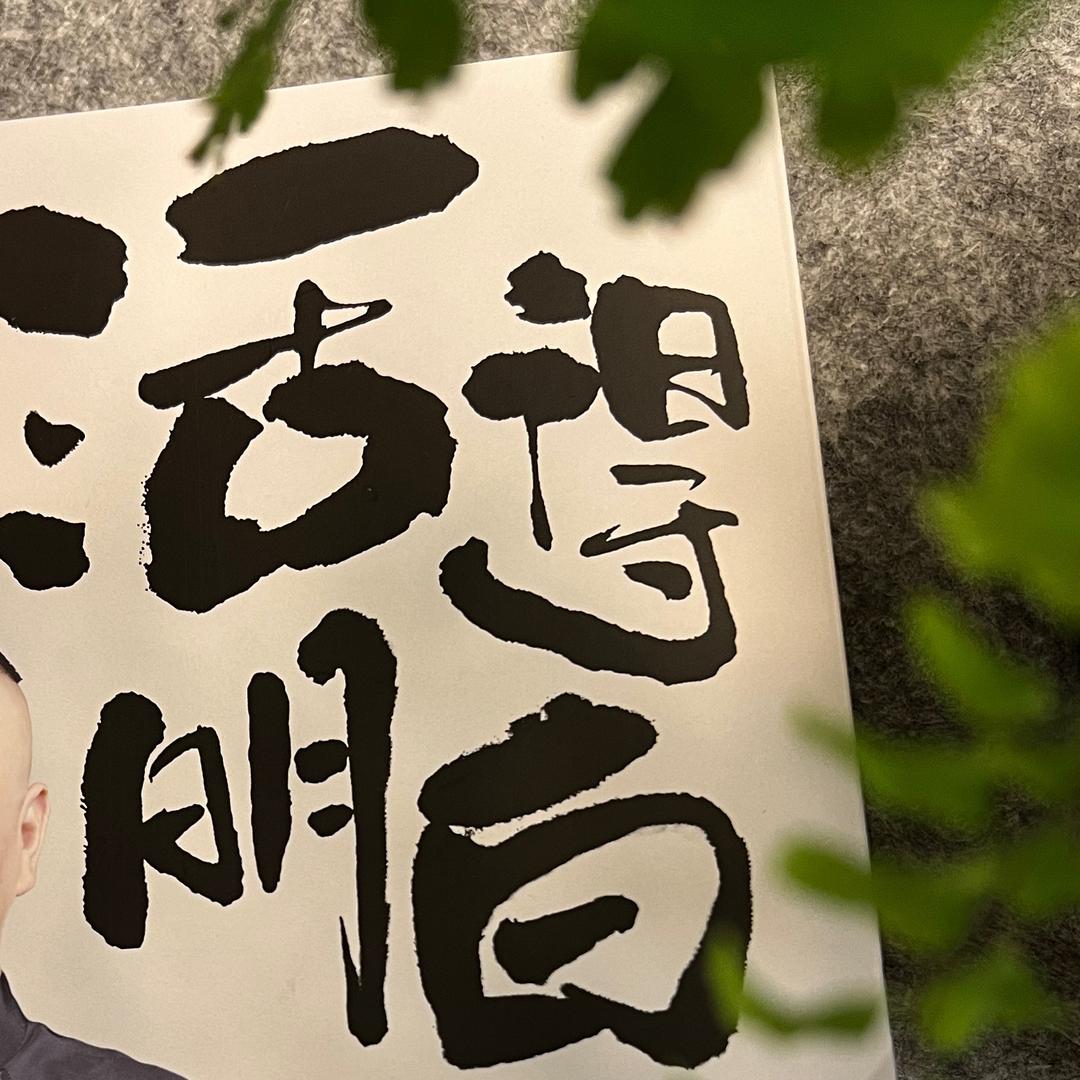 活得
明白